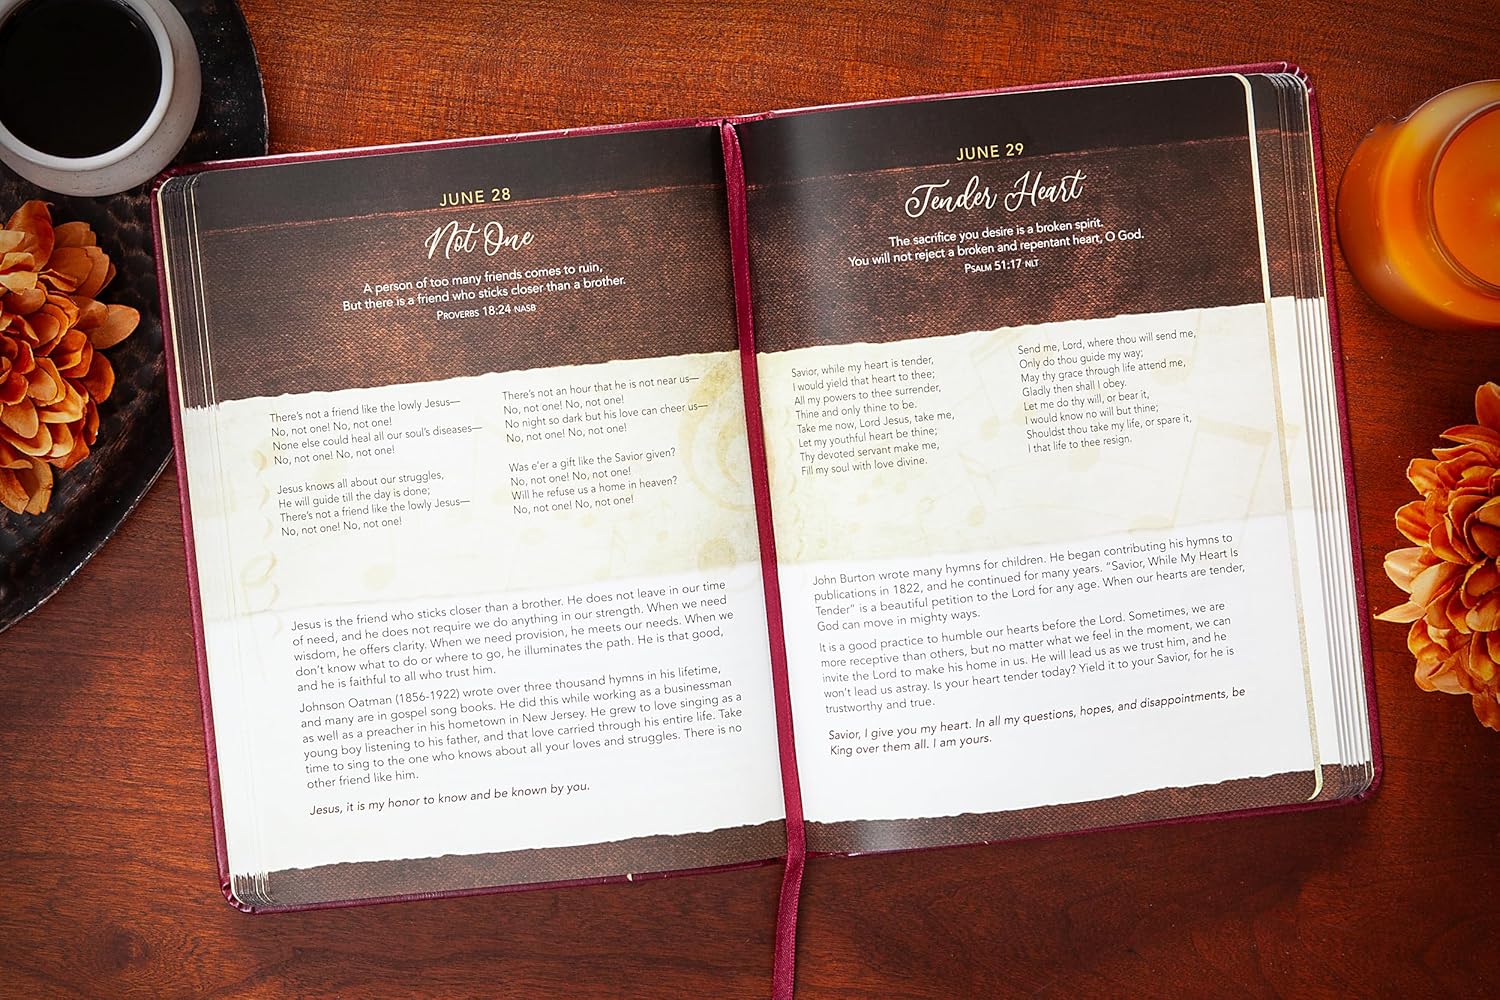 JUNE 28
Not One
A person of too many friends comes to ruin,
But there is a friend who sticks closer than a brother.
PROVERBS 18:24 NASB
There's not a friend like the lowly Jesus—
No, not one! No, not one!
None else could heal all our soul's diseases—
No, not one! No, not one!
Jesus knows all about our struggles,
He will guide till the day is done;
There's not a friend like the lowly Jesus—
No, not one! No, not one!
There's not an hour that he is not near us—
No, not one! No, not one!
No night so dark but his love can cheer us—
No, not one! No, not one!
Was e'er a gift like the Savior given?
No, not one! No, not one!
Will he refuse us a home in heaven?
No, not one! No, not one!
Jesus is the friend who sticks closer than a brother. He does not leave in our time
of need, and he does not require we do anything in our strength. When we need
wisdom, he offers clarity. When we need provision, he meets our needs. When we
don't know what to do or where to go, he illuminates the path. He is that good,
and he is faithful to all who trust him.
Johnson Oatman (1856-1922) wrote over three thousand hymns in his lifetime,
and many are in gospel song books. He did this while working as a businessman
as well as a preacher in his hometown in New Jersey. He grew to love singing as a
young boy listening to his father, and that love carried through his entire life. Take
time to sing to the one who knows about all your loves and struggles. There is no
other friend like him.
Jesus, it is my honor to know and be known by you.
JUNE 29
Tender Heart
The sacrifice you desire is a broken spirit.
You will not reject a broken and repentant heart, O God.
PSALM 51:17 NLT
Savior, while my heart is tender,
I would yield that heart to thee;
All my powers to thee surrender,
Thine and only thine to be.
Take me now, Lord Jesus, take me,
Let my youthful heart be thine;
Thy devoted servant make me,
Fill my soul with love divine.
Send me, Lord, where thou will send me,
Only do thou guide my way;
May thy grace through life attend me,
Gladly then shall I obey.
Let me do thy will, or bear it,
I would know no will but thine;
Shouldst thou take my life, or spare it,
I that life to thee resign.
John Burton wrote many hymns for children. He began contributing his hymns to
publications in 1822, and he continued for many years. "Savior, While My Heart Is
Tender" is a beautiful petition to the Lord for any age. When our hearts are tender,
God can move in mighty ways.
It is a good practice to humble our hearts before the Lord. Sometimes, we are
more receptive than others, but no matter what we feel in the moment, we can
invite the Lord to make his home in us. He will lead us as we trust him, and he
won't lead us astray. Is your heart tender today? Yield it to your Savior, for he is
trustworthy and true.
Savior, I give you my heart. In all my questions, hopes, and disappointments, be
King over them all. I am yours.